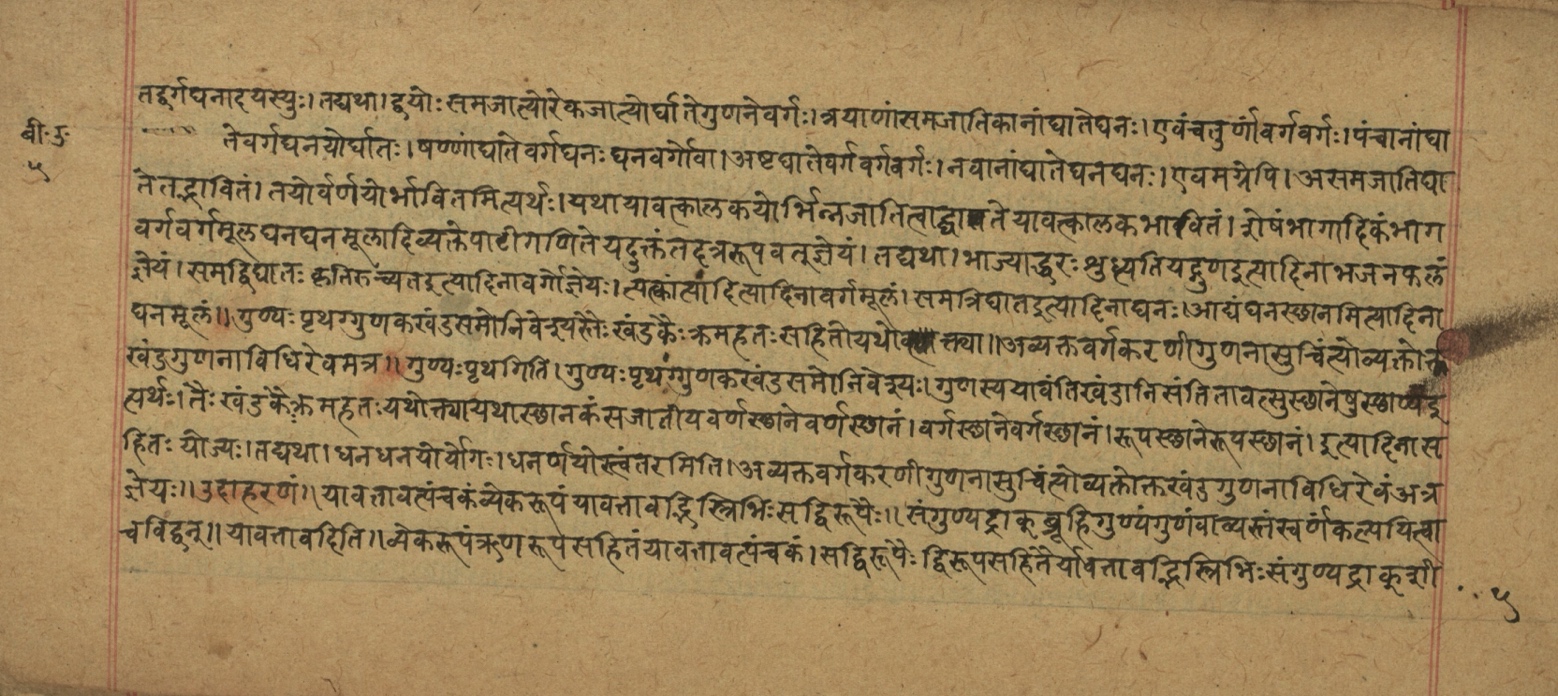 तद्वर्गघनादयस्युः। तद्यथा। द्वयोः समजात्योरेकजात्योर्घातेगुणनेवर्गः। त्रयाणांसमजातिकानांघातेघनः। एवंचतुर्णांवर्गवर्गः। पंचानांघा
बी॰ उ॰
५
तेवर्गघनयोर्घातः। षण्णांघातेवर्गघनः घनवर्गोवा। अष्टघातेवर्गवर्गवर्गः। नवानांघातेघनघनः। एवमग्रेपि। असमजातिघा
तेतद्भावितं। तयोर्वर्णयोर्भावितमित्यर्थः। यथायावत्कालकयोर्भिन्नजातित्वाद्घातेयावत्कालकभावितं। शेषंभागादिकंभाग
वर्गवर्गमूलघनघनमूलादिव्यक्तेपाटीगणितेयदुक्तंतदत्ररूपवत्ज्ञेयं। तद्यथा। भाज्याद्धरः शुध्यतियद्गुणइत्यादिनाभजनफलं
ज्ञेयं। समद्विघातः कृतिरुच्यतइत्यादिनावर्गोज्ञेयः। त्यत्क्वांत्यादित्यादिनावर्गमूलं। समत्रिघातइत्यादिनाघनः। आद्यंघनस्छानमित्यादिना
घनमूलं॥ गुण्यः पृथग्गुणकखंडसमोनिवेश्यस्तैः खंडकैः क्रमहतः सहितोयथोक्त्या॥ अव्यक्तवर्गकरणीगुणनासुचिंत्योव्यक्तोक्त
खंडगुणनाविधिरेवमत्र॥ गुण्यः पृथगिति। गुण्यः पृथग्गुणकखंडसमोनिवेश्यः। गुणस्ययावंतिखंडानिसंतितावत्सुस्छानेषुस्छाप्यइ
त्यर्थः। तैः खंडकैः क्रमहतः यथोक्त्यायथास्छानकंसजातीयवर्णस्छानेवर्णस्छानं। वर्गस्छानेवर्गस्छानं। रूपस्छानेरूपस्छानं। इत्यादिनास
हितः योज्यः। तद्यथा। धनधनयोर्योगः। धनर्णयोस्त्वंतरमिति। अव्यक्तवर्गकरणीगुणनासुचिंत्योव्यक्तोक्तखंडगुणनाविधिरेवंअत्र
ज्ञेयः॥ उदाहरणं॥ यावत्तावत्पंचकंव्येकरूपंयावत्तावद्भिस्त्रिभिः सद्विरूपैः॥ संगुण्यद्राक्ब्रूहिगुण्यंगुणंवाव्यस्तंस्वर्णंकल्पयित्वा
चविद्वन्॥ यावत्तावदिति॥ व्येकरूपंऋणरूपसहितंयावत्तावत्पंचकं। सद्विरूपैः द्विरूपसहितैर्यावत्तावद्भिस्त्रिभिः संगुण्यद्राक्शी
५